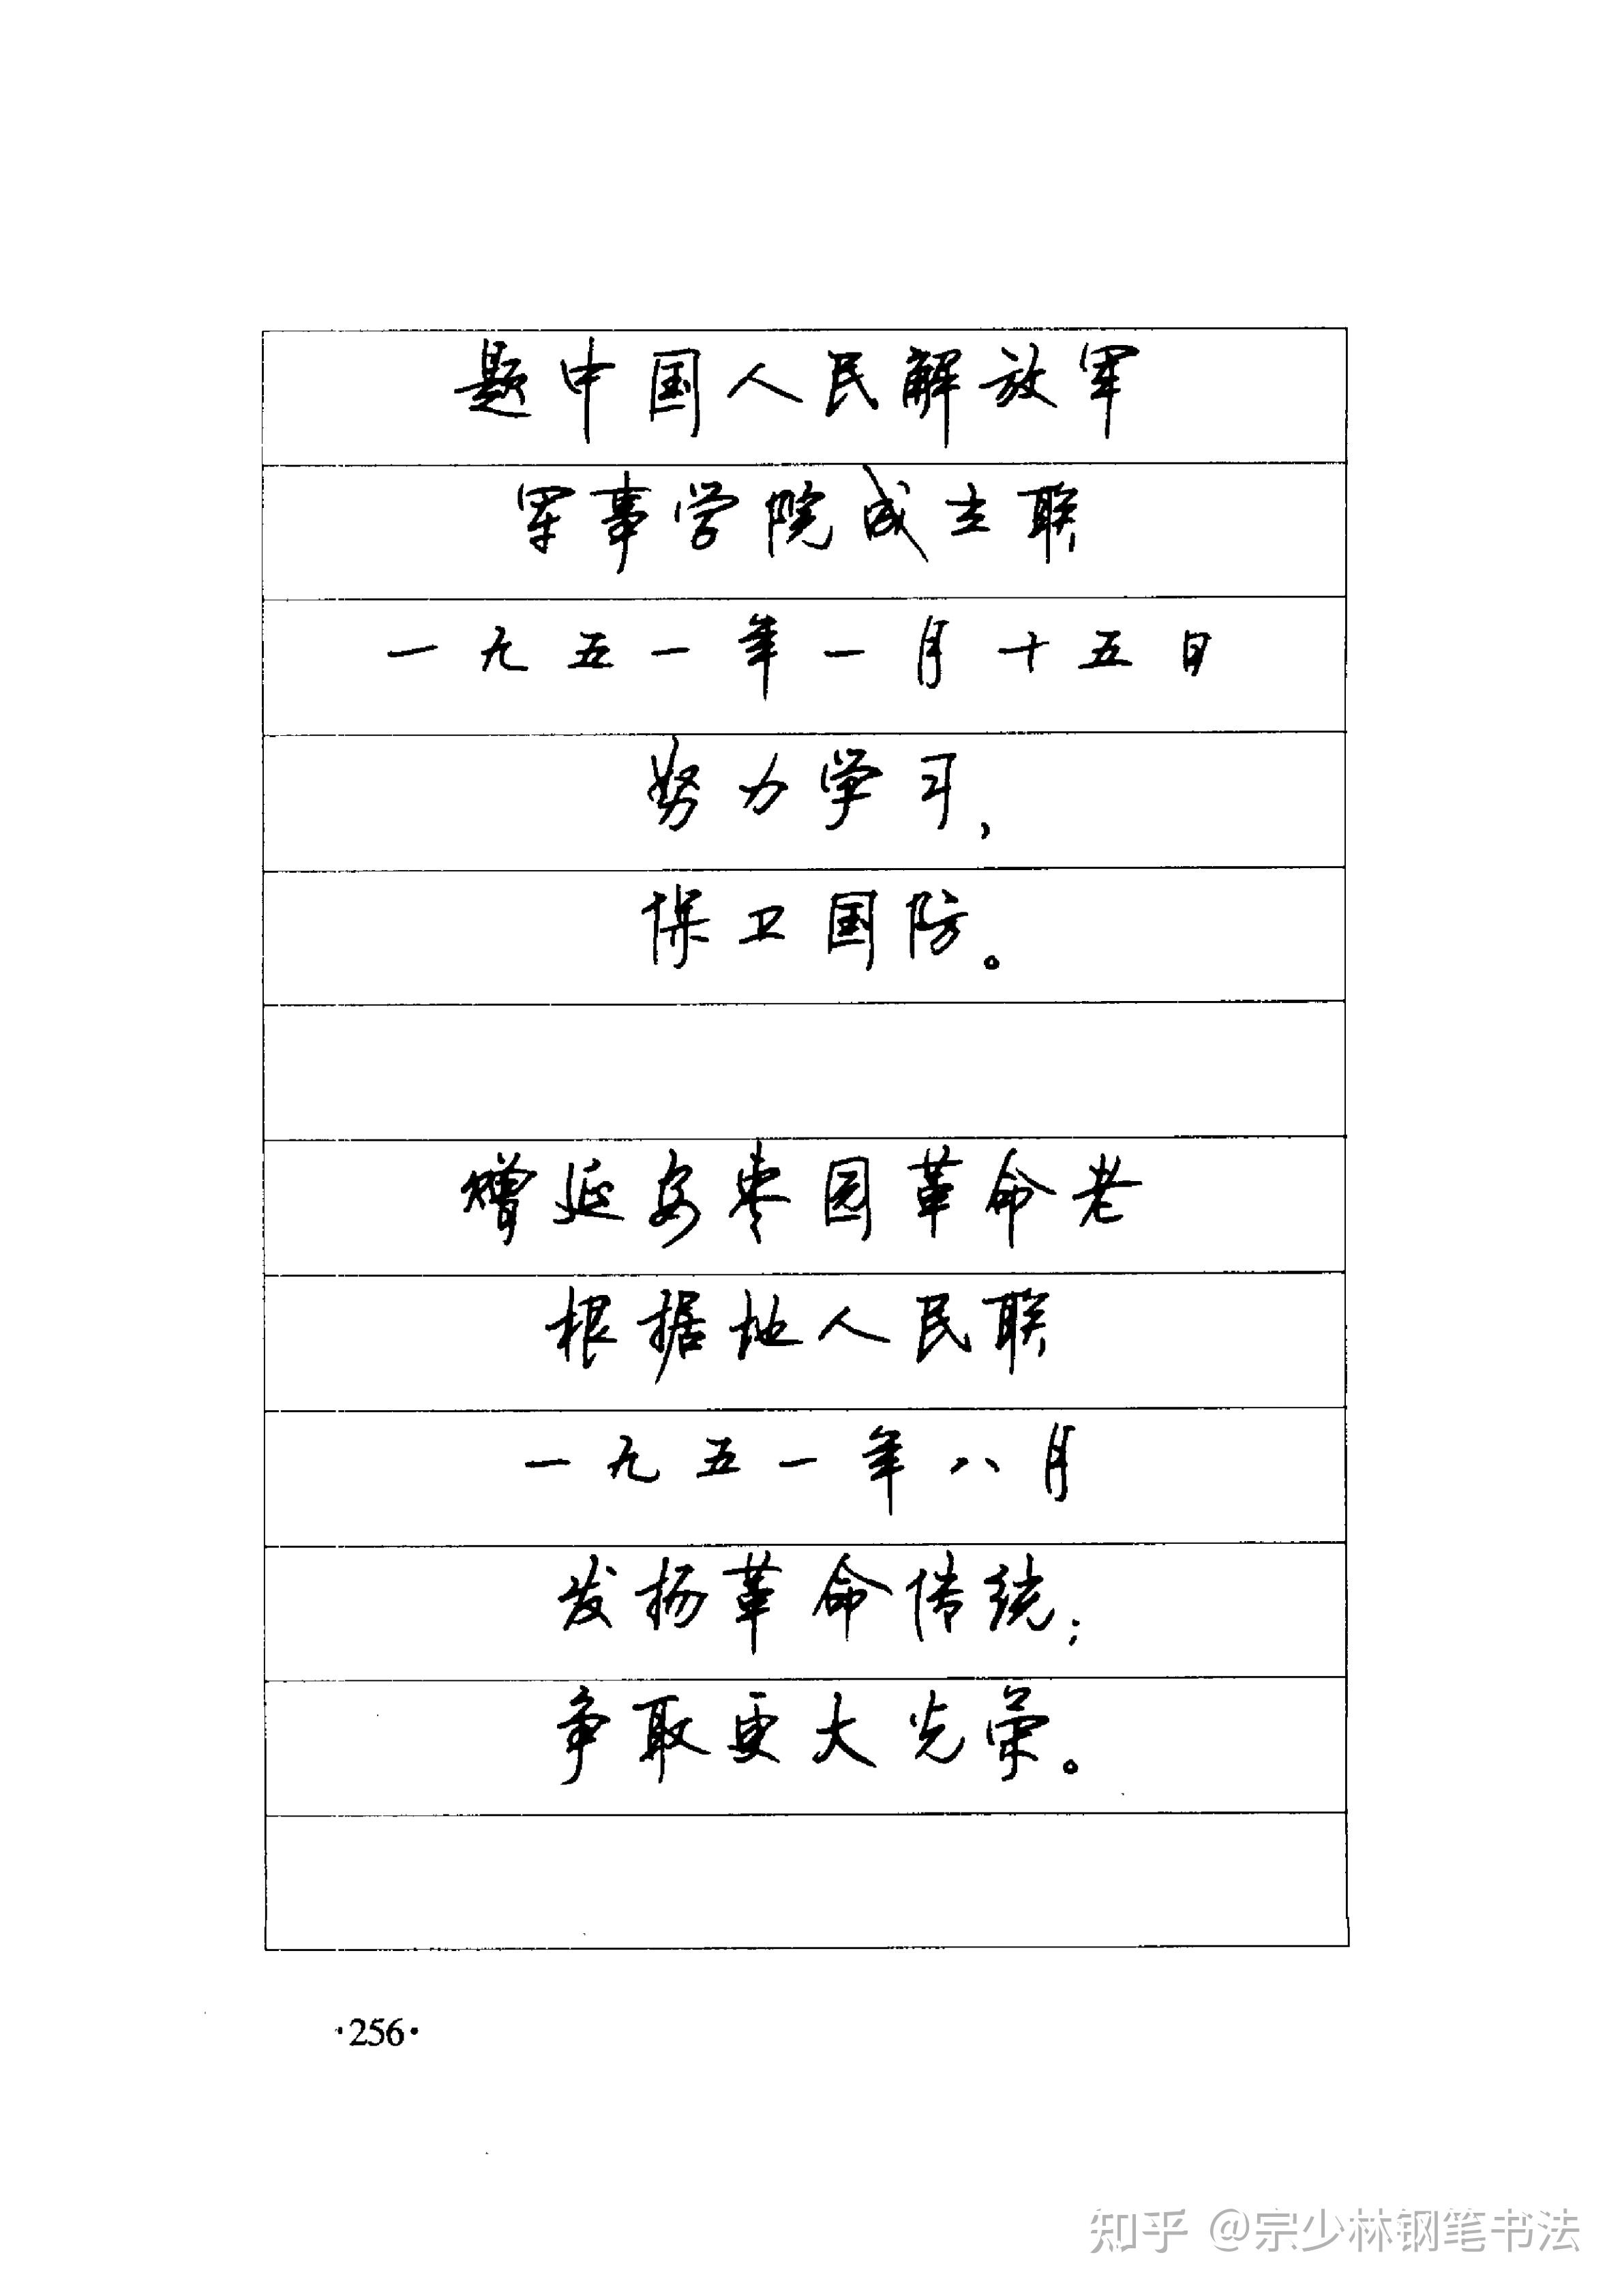 题中国人民解放军
军事学院成立联
一九五一年一月十五日
努力学习，
保卫国防。
赠延安枣园革命老
根据地人民联
一九五一年八月
发扬革命传统；
争取更大光荣。
·256·
知乎 @宗少林钢笔书法